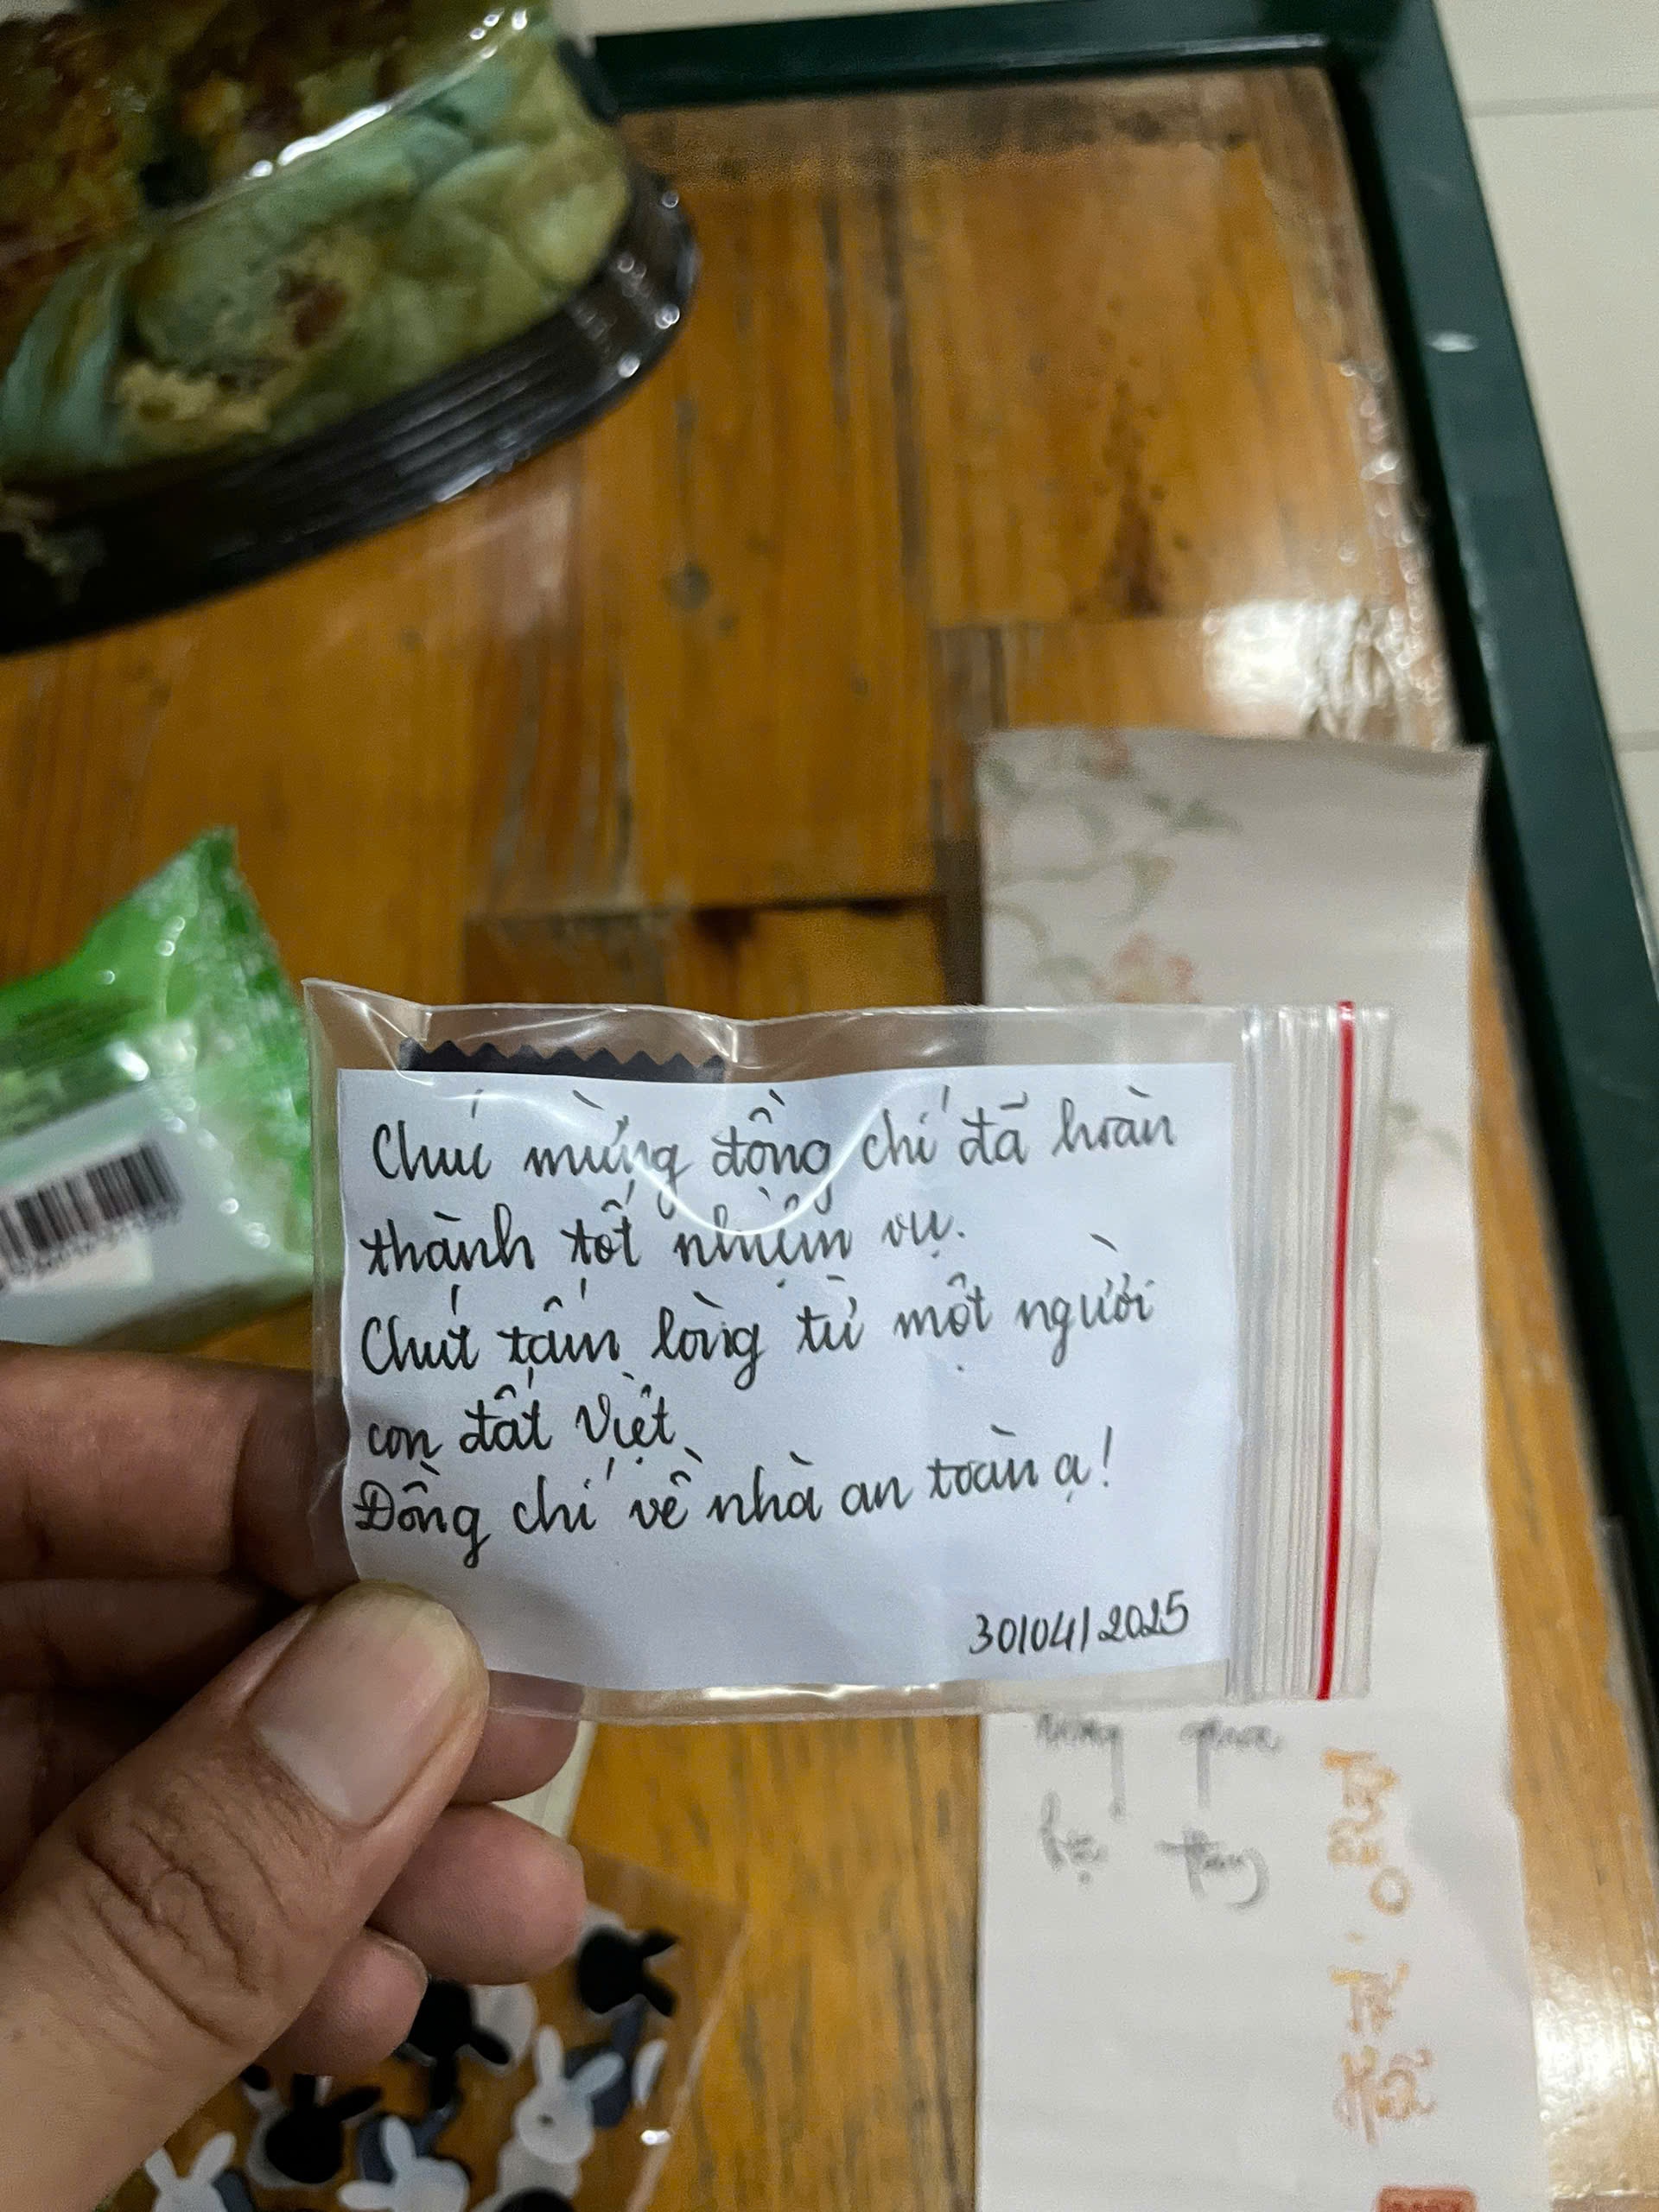 Chúc mừng đồng chí đã hoàn
thành tốt nhiệm vụ.
Chút tấm lòng từ một người
con đất Việt
Đồng chí về nhà an toàn ạ!
30/04/2025